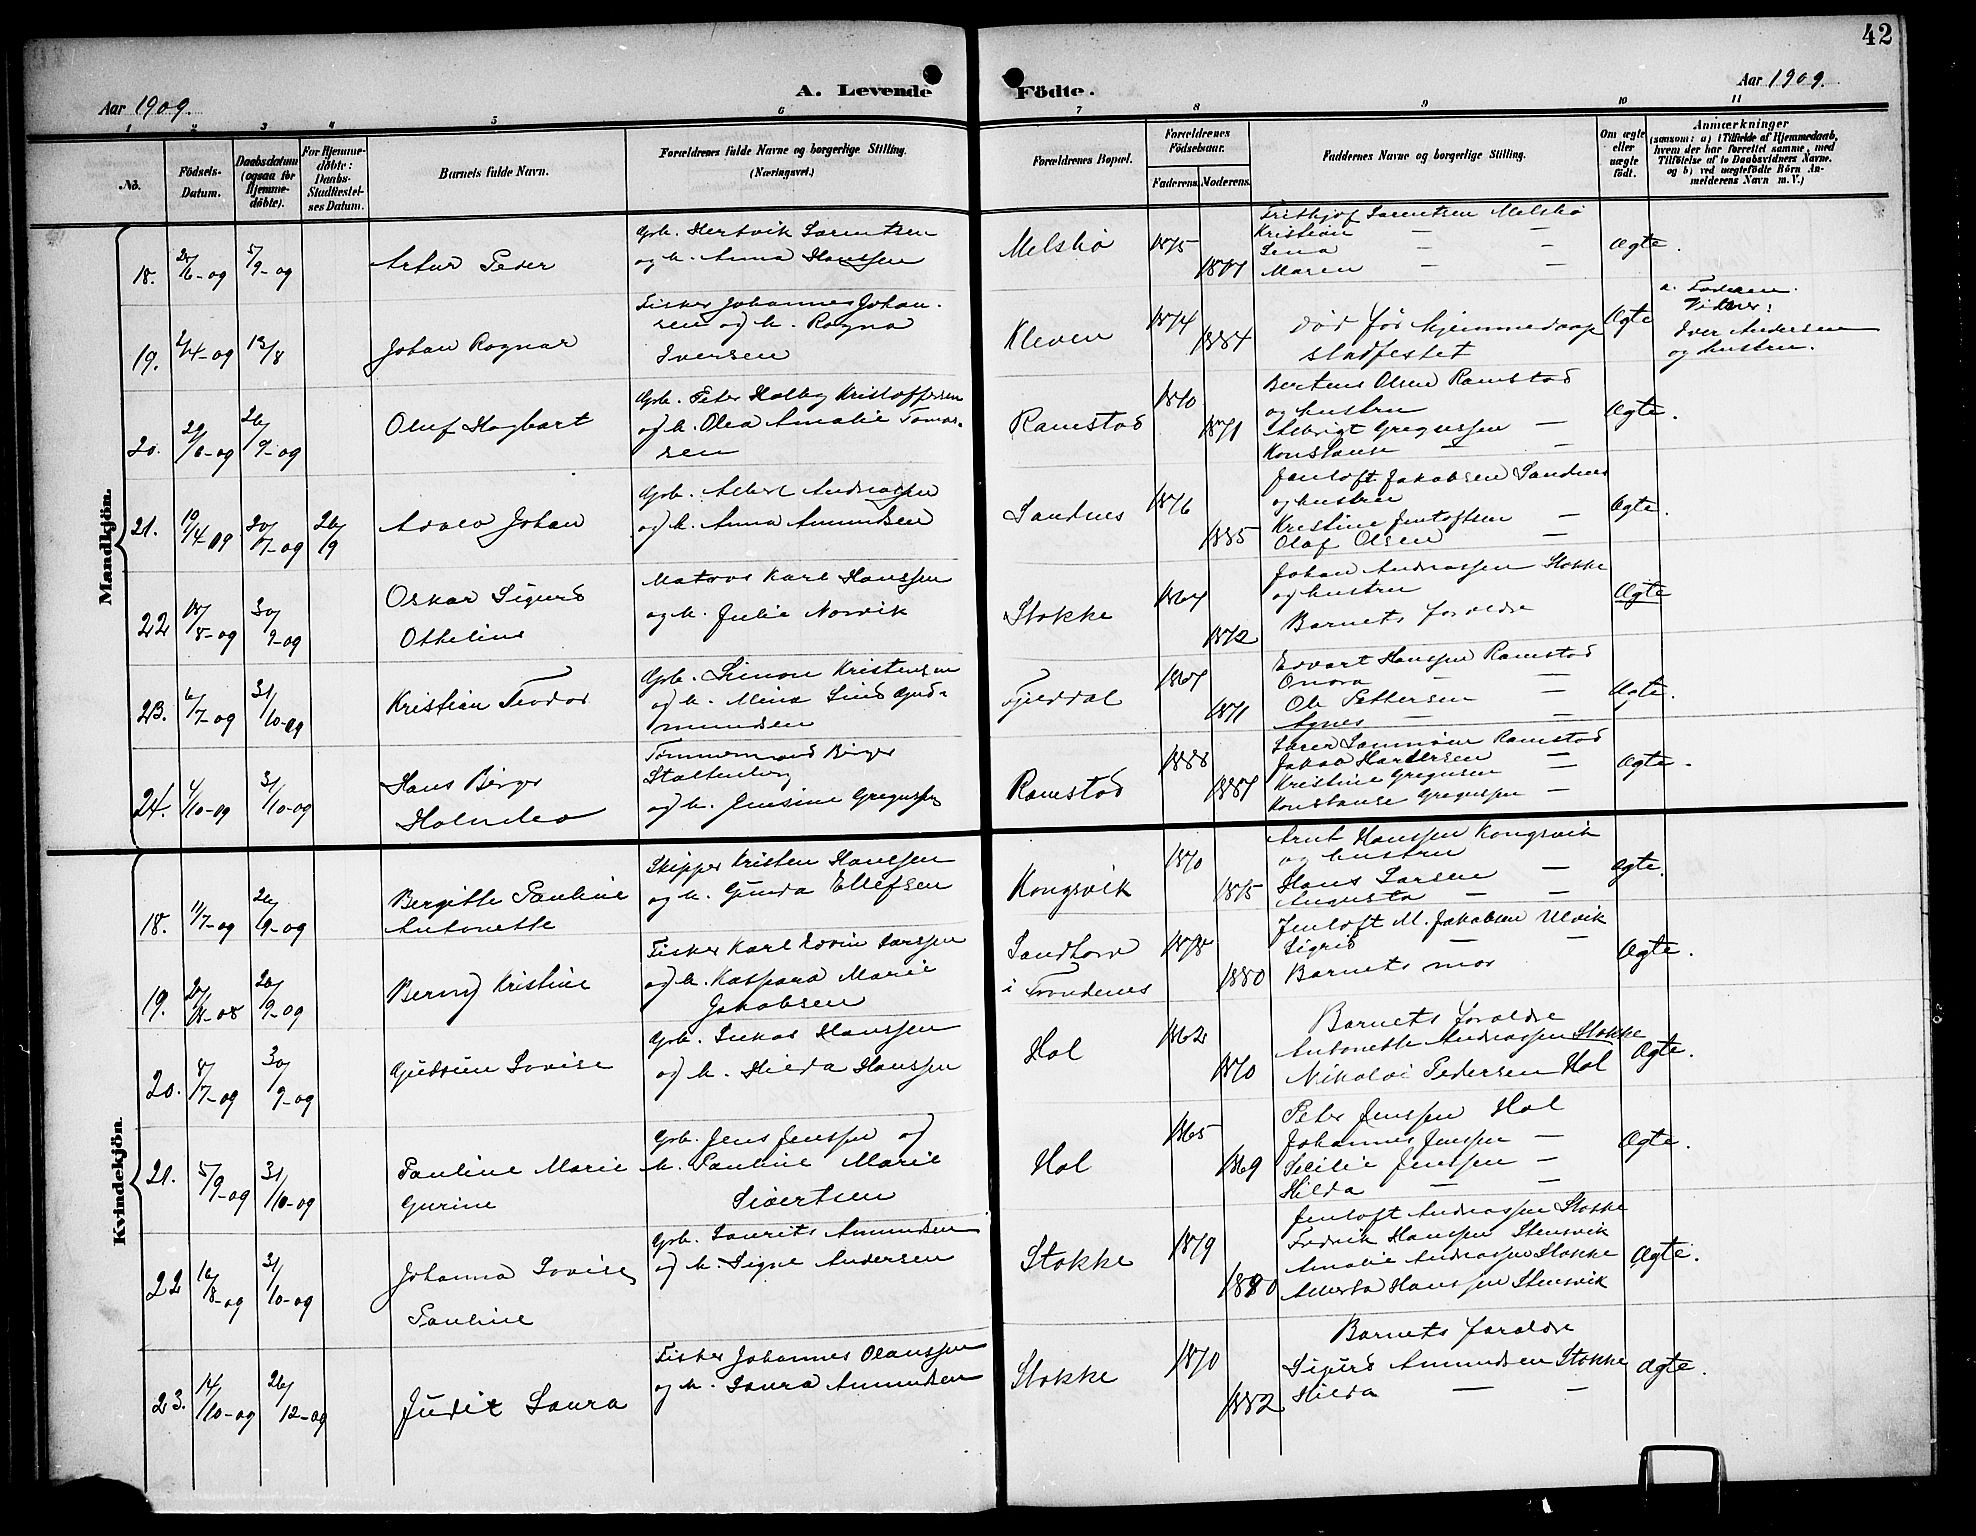 42
Aar 1909.
A. Levende
Födte.
Aar 1909.
1 2 3 4 5 6 7 8 9 10 11
No.
Födsels-
Datum.
Daabsdatum
(ogsaa for
Hjemme-
døbte).
For Hjemme-
döbte:
Daabs-
Stadfæstel-
ses Datum.
Barnets fulde Navn.
Forældrenes fulde Navne og borgerlige Stilling.
(Næringsvei.)
Forældrenes Bopæl.
Forældrenes
Födselsaar.
Faderens. Moderens.
Faddernes Navne og borgerlige Stilling.
Om ægte
eller
uægte
födt.
Anmærkninger
(saasom: a) i Tilfælde af Hjemmedaab,
hvem der har forrettet samme, med
Tilföielse af to Daabsvidners Navne.
og b) ved uægtefödte Börn An-
melderens Navn m. V.)
Mandkjön.
18.
5/9-09
Artur Peder
Grb. Hertvik Larentsen
og h. Anna Hanssen
Melshø
1875
Fritkjof Larentsen Melshø
Kristian — —
Lina — —
Maren — —
Ægte.
19.
13/8
Johan Ragnar
Fisker Johannes Johan-
sen og h. Ragna
Iversen
Kleven
1874
1884
Død før hjemmedaap
stadfestet
Ægte
a. Faderen.
Vidner:
Iver Andersen
og hustru.
20.
29/6-09
26/9-09
Oluf Hagbart
Grb. Peter Holby Kristoffersen
og h. Olea Amalie Tomas-
sen
Ramstad
1870
1871
Berteus Olsen Ramstad
og hustru
Albrigt Gregussen —
Konstanse — —
Ægte.
21.
10/4-09
20/7-09
26/19
Adolv Johan
Grb. Albert Andreassen
og h. Anna Amundsen
Sandnes
1876
1885
Jentoft Jakobsen Sandnes
og hustru
Kristine Jentoftsen —
Olaf Olsen —
Ægte.
22
18/8-09
30/9-09
Oskar Sigurd
Othelius
Matros Karl Hanssen
og h. Julie Norvik
Stokke
1867
1872
Johan Andreassen Stokke
og hustru
Barnets foreldre
Ægte
23.
6/7-09
31/10-09
Kristian Teodor
Grb. Simon Kristensen
og h. Mina Lind Gud-
mundsen
Fjelldal
1867
1871
Edvart Hanssen Ramstad
Onora — —
Ole Pettersen —
Agnes — —
Ægte.
24.
31/10-09
Hans Birger
Tømmermand Birger
Stoltenberg
og h. Jensine Gregussen
Ramstad
1888
1887
Ramstad
Jakob Hartersen —
Kristine Gregusen —
Konstanse Gregussen —
Ægte.
Kvindekjön.
18.
11/7-09
26/9-09
Bergitte Pauline
Antonette
Skipper Kristen Hanssen
og h. Gunda Ellefsen
Kongsvik
1870
1875
Arnt Hanssen Kongsvik
og hustru
Hans Larsen —
Augusta — —
Ægte.
19.
26/9-09
Berny Kristine
Fisker Karl Edvin Larssen
og h. Kaspara Marie
Jakobsen
Sandtorv
i Trondenes
1878
1880
Jentoft M. Jakobsen Ulvik
Sigrid — —
Barnets mor
Ægte.
20.
8/7-09
30/9-09
Gudrun Lovise
Grb. Lukas Hanssen
og h. Hilda Hanssen
Hol
1862
1870
Barnets foreldre
Antonette Andreassen Stokke
Nikolai Pedersen Hol
Ægte.
21.
5/9-09
31/10-09
Pauline Marie
Gurine
Grb. Jens Jenssen og
h. Pauline Marie
Sivertsen
Hol
1865
1869
Peter Jenssen Hol
Johannes Jenssen —
Sesilie Jenssen —
Hilda — —
Ægte.
22
16/8-09
31/10-09
Johanna Lovise
Pauline
Grb. Laurits Amundsen
og h. Signe Andersen
Stokke
1879
1880
Jentoft Andreassen Stokke
Fredrik Hanssen Stensvik
Amalie Andreassen Stokke
Alberta Hanssen Stensvik
Ægte.
23.
14/10-09
26/12-09
Judit Laura
Fisker Johannes Olaussen
og h. Laura Amundsen
Stokke
1870
1882
Barnets foreldre
Sigurd Amundsen Stokke
Hilda — —
Ægte.